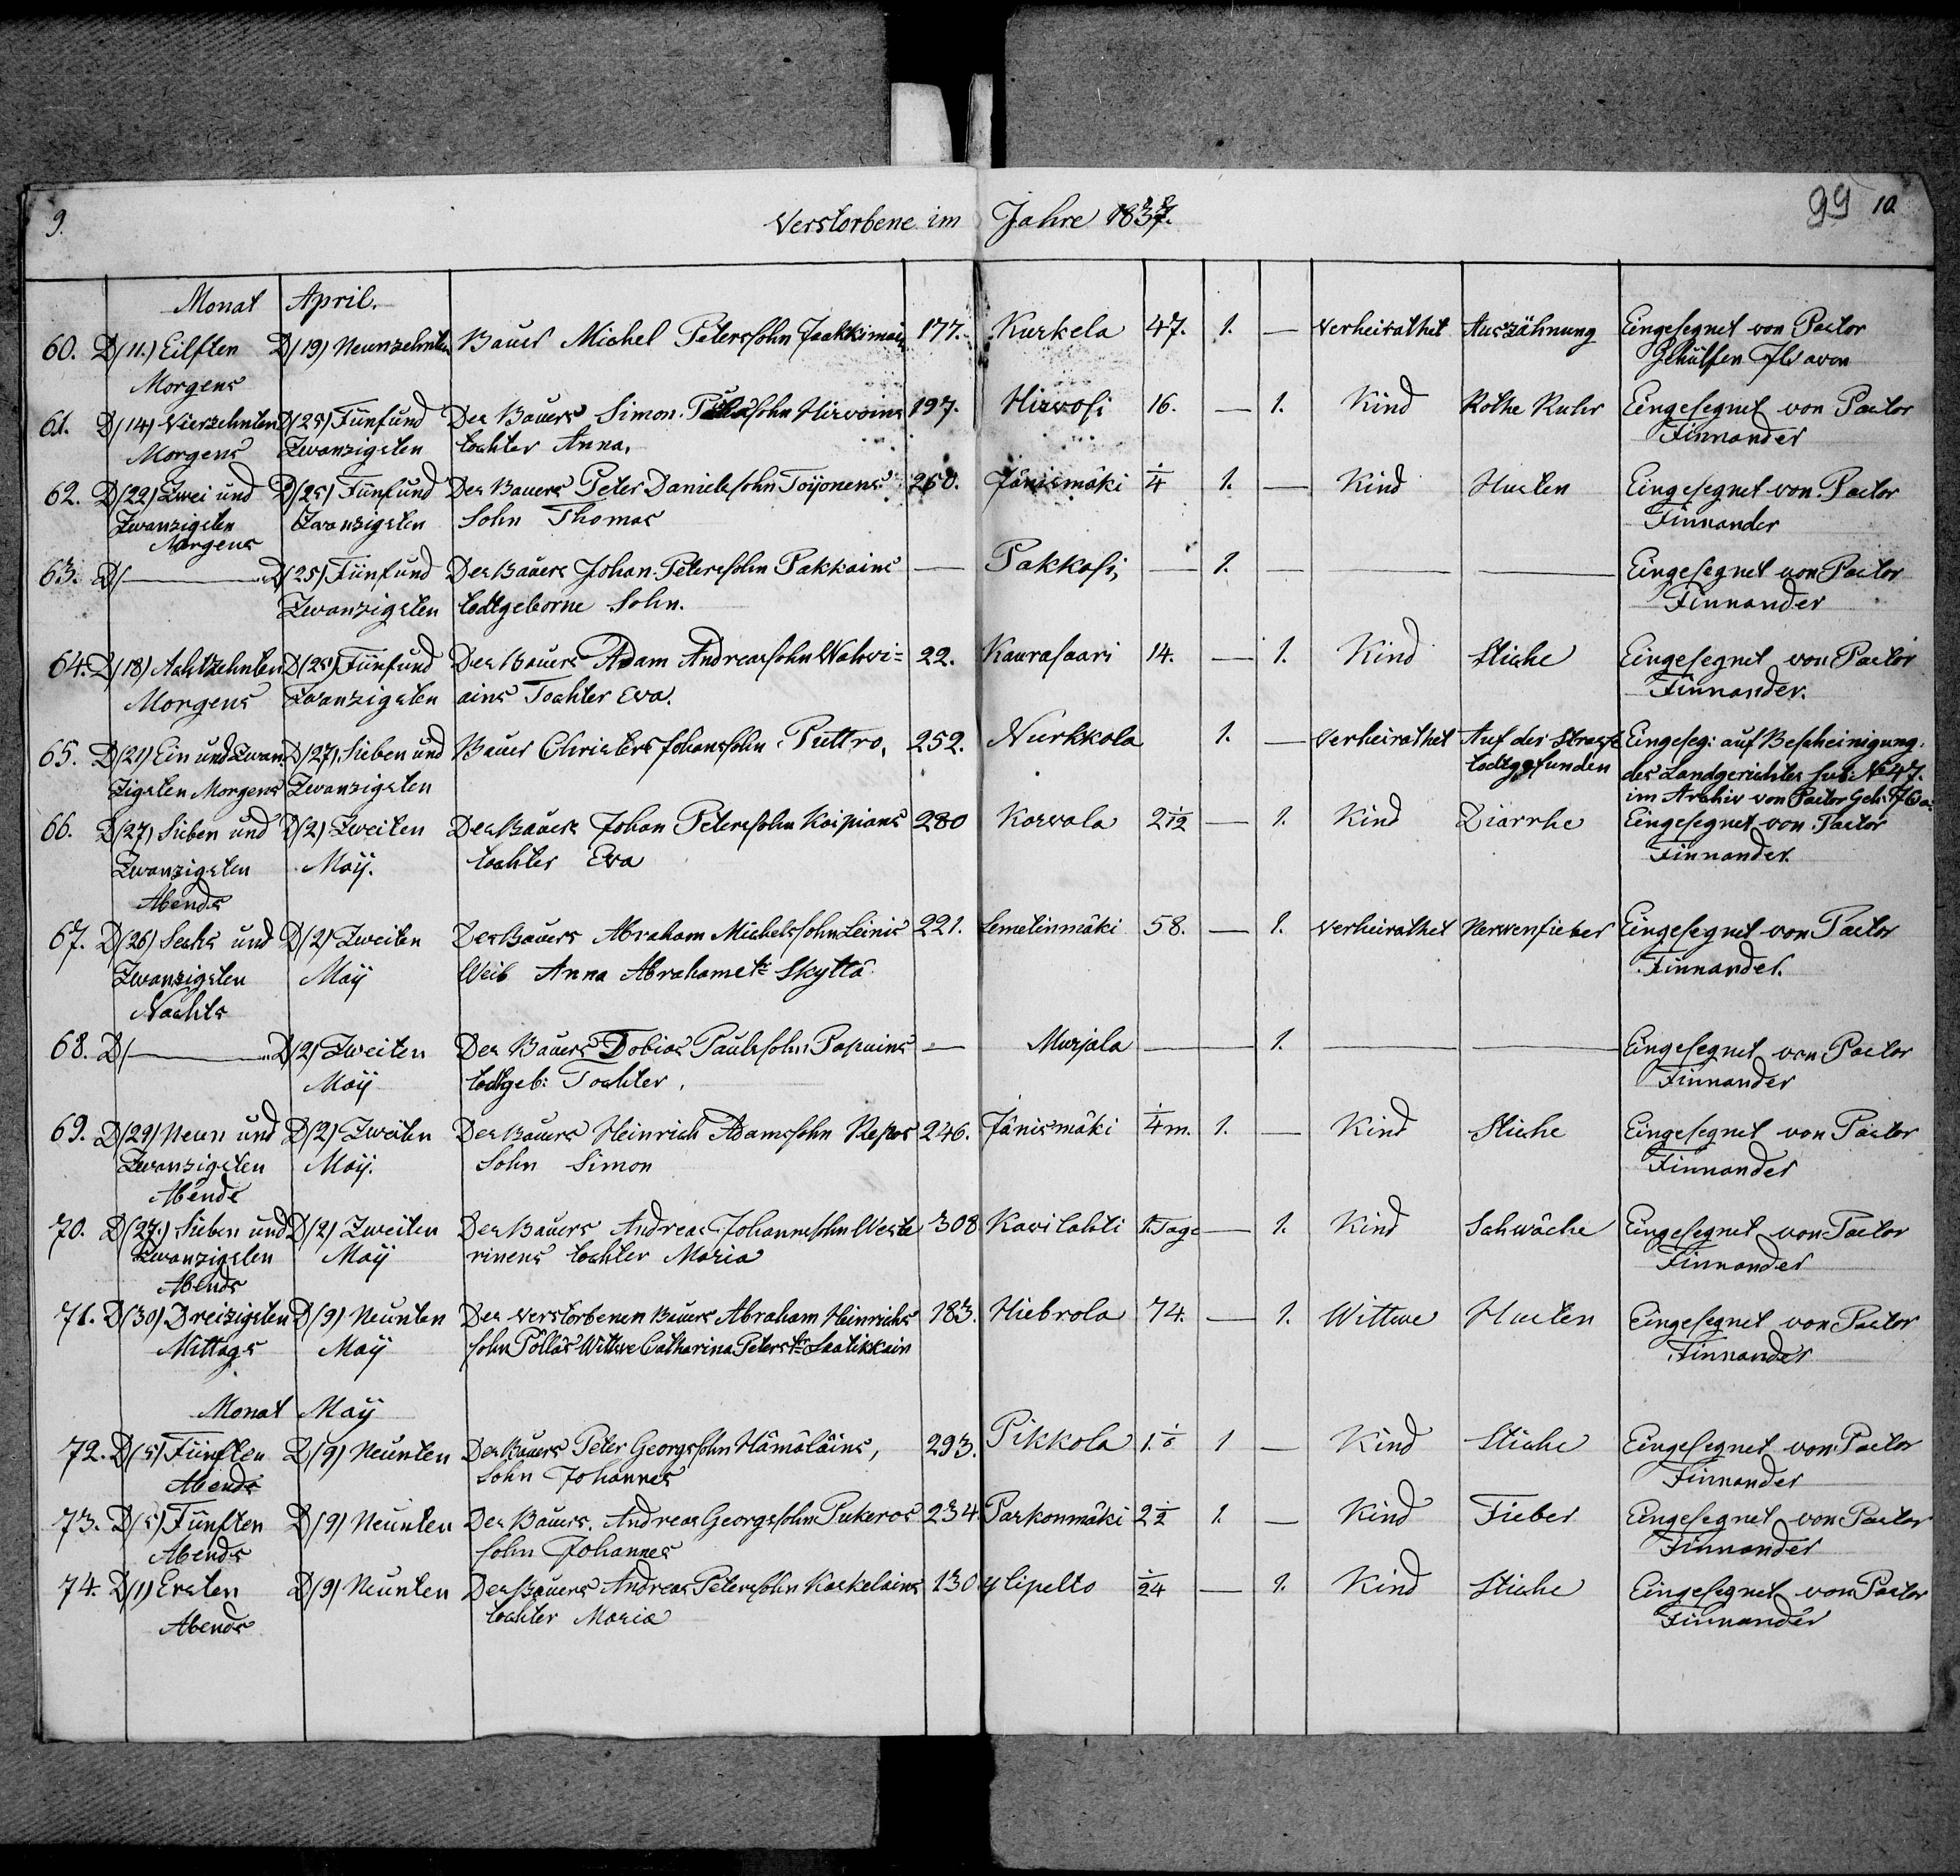 9. Verstorbene im Jahre 1837. 99 10
Monat April.
60. D(11.) Eilften D(19) Neunzehnten Bauer Michel Peterssohn Jaakkimain 177. Kurkela 47. 1. — Verheirathet Auszähnung Eingesegnet von Pastor
Morgens Gehülfen
61. D(14) Vierzehnten D(25) Fünfund Des Bauers Simon Hirvoins 197. Hirvosi 16. — 1. Kind Rothe Ruhr Eingesegnet von Pastor
Morgens Zwanzigsten tochter Anna. Finnander
62. D(22) Zwei und D(25) Fünfund Des Bauers Peter Danielssohn Toijonens 260. Jänismäki 1/4 1. — Kind Husten Eingesegnet von Pastor
Zwanzigsten Zwanzigsten Sohn Thomas Finnander
Morgens
63. D(— D(25) Fünfund Des Bauers Johan Peterssohn Pakkains — Pakkasi, — 1. — — — Eingesegnet von Pastor
Zwanzigsten todtgeborne Sohn. Finnander
64. D(18) Achtzehnten D(25) Fünfund Des Bauers Adam Andreassohn Wahvi= 22. Kaurasaari 14. — 1. Kind Stiche Eingesegnet von Pastor
Morgens Zwanzigsten ains Tochter Eva. Finnander.
65. D(21) Ein und Zwan D(27) Sieben und Bauer Christers Johanssohn Puttro, 252. Nurkkola 1. — Verheirathet Auf der Strasse Eingeseg: auf Bescheinigung
zigsten Morgens Zwanzigsten todtgefunden des Landgerichtes sub: No 47.
im Archiv von Pastor Geh:
66. D(27) Sieben und D(2) Zweiten Des Bauers Johan Peterssohn Koipians 280 Korvala 2 1/12 — 1. Kind Diarrhe Eingesegnet von Pastor
Zwanzigsten Maÿ. tochter Eva Finnander.
Abends
67. D(26) Sechs und D(2) Zweiten Des Bauers Abraham Michelssohn Leinis 221. Lemetinmäki 58. — 1. Verheirathet Nervenfieber Eingesegnet von Pastor
Zwanzigsten Maÿ Weib Anna Abrahamstr Skyttä Finnander.
Nachts
68. D(— D(2) Zweiten Des Bauers Tobias Paulssohn Papuins — Murjala — 1. — — Eingesegnet von Pastor
Maÿ todtgeb: Tochter. Finnander
69. D(29) Neun und D(2) Zweiten Des Bauers Heinrich Adamssohn Repos 246. Jänismäki 1/4 m. 1. — Kind Stiche Eingesegnet von Pastor
Zwanzigsten Maÿ. Sohn Simon Finnander
Abends
70. D(27.) Sieben und D(2) Zweiten Des Bauers Andreas Johannssohn Weste 308 Karilahti 1. Tage — 1. Kind Schwäche Eingesegnet von Pastor
Zwanzigsten Maÿ rinens tochter Maria Finnander
Abends
71. D(30) Dreizigsten D(9) Neunten Des verstorbenen Bauers Abraham Heinrichs 183. Hiebrola 74. — 1. Wittwe Husten Eingesegnet von Pastor
Mittags Maÿ sohn Pölläs Wittwe Catharina Peterstr Saatikkain Finnander
Monat Maÿ
72. D(5) Fünften D(9) Neunten Des Bauers Peter Georgssohn Hämäläins, 293. Pikkola 1 1 — Kind Stiche Eingesegnet von Pastor
Abends Sohn Johannes Finnander
73. D(5) Fünften D(9) Neunten Des Bauers Andreas Georgssohn Pukeros 234 Paskonmäki 2 1/2 1. — Kind Fieber Eingesegnet von Pastor
Abends sohn Johannes Finnander
74. D(1) Ersten D(9) Neunten Des Bauers Andreas Peterssohn Koskelains 130 Ylipelto 1/24 — 1. Kind Stiche Eingesegnet von Pastor
Abends tochter Maria Finnander